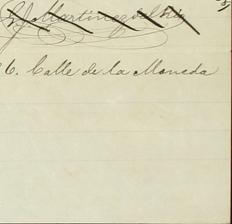 Martinez del Rio
6. Calle de la Moneda